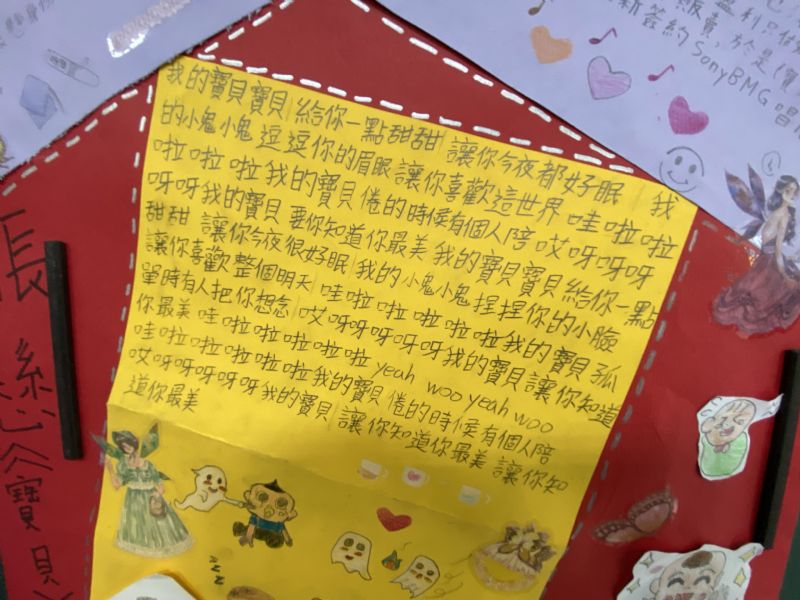 我的寶貝寶貝 給你一點甜甜 讓你今夜都好眠 我
的小鬼小鬼 逗逗你的眉眼 讓你喜歡這世界 哇啦啦
啦啦啦我的寶貝 倦的時候有個人陪 哎呀呀呀
呀呀我的寶貝 要你知道你最美 我的寶貝寶貝 給你一點
甜甜 讓你今夜很好眠 我的小鬼小鬼 捏捏你的小臉
讓你喜歡整個明天 哇啦啦啦啦啦我的寶貝 孤
單時有人把你想念 哎呀呀呀呀呀我的寶貝 讓你知道
你最美 哇啦啦啦啦啦 yeah woo yeah woo
哇啦啦啦啦啦我的寶貝 倦的時候有個人陪
哎呀呀呀呀呀我的寶貝 讓你知道你最美 讓你知
道你最美
張懸《寶貝》
新簽約SonyBMG唱